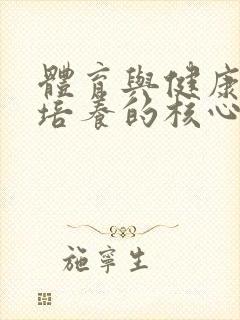 體育與健康
培養的核心
施寧生